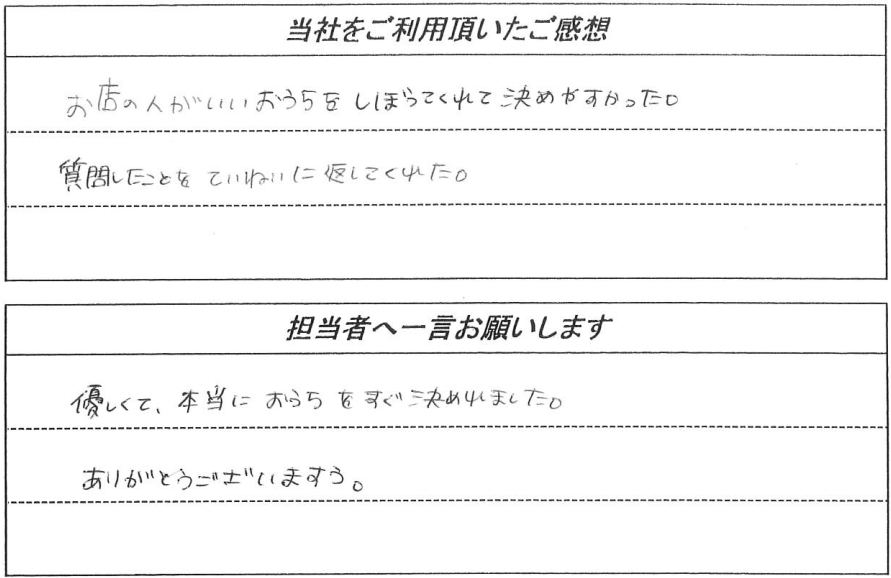 当社をご利用頂いたご感想
お店の人がいいおうちをしぼってくれて決めやすかった。
質問したことをていねいに返してくれた。
担当者へ一言お願いします
優しくて、本当におうちをすぐ決めれました。
ありがとうございますう。